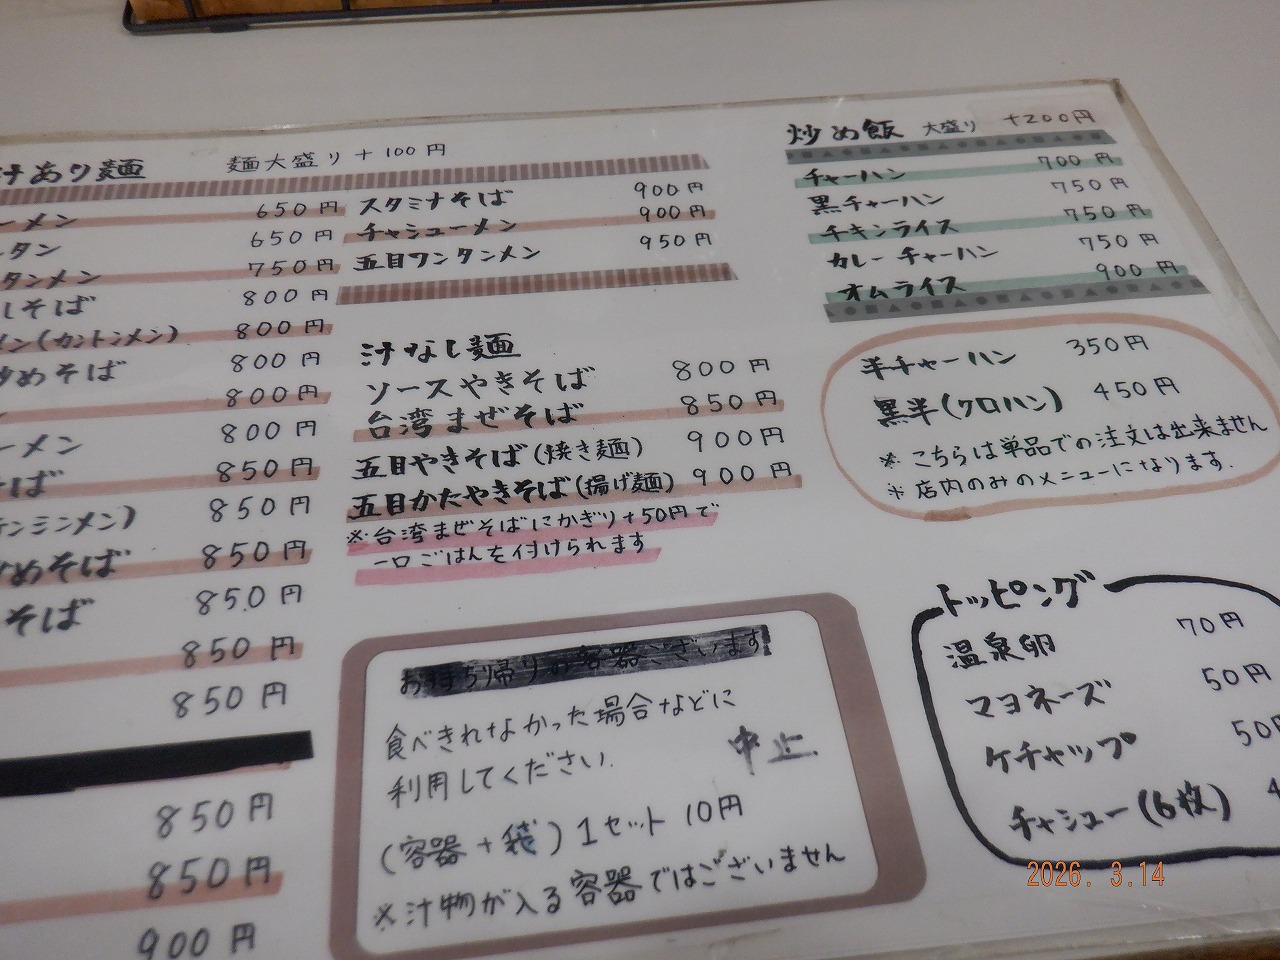 汁あり麺 麺大盛り+100円
ーメン 650円
タン 650円
タンメン 750円
しそば 800円
メン(カントンメン) 800円
炒めそば 800円
800円
ーメン 800円
そば 850円
テンミンメン) 850円
めそば 850円
そば 850円
850円
850円
850円
850円
900円
スタミナそば 900円
チャシューメン 900円
五目ワンタンメン 950円
汁なし麺
ソースやきそば 800円
台湾まぜそば 850円
五目やきそば(焼き麺) 900円
五目かたやきそば(揚げ麺) 900円
※台湾まぜそばにかぎり+50円で
一口ごはんを付けられます
お持ち帰りの容器ございます
食べきれなかった場合などに
利用してください。
中止
(容器+袋)1セット 10円
※汁物が入る容器ではございません
炒め飯 大盛り +200円
チャーハン 700円
黒チャーハン 750円
チキンライス 750円
カレーチャーハン 750円
オムライス 900円
半チャーハン 350円
黒半(クロハン) 450円
※こちらは単品での注文は出来ません
※店内のみのメニューになります。
トッピング
温泉卵 70円
マヨネーズ 50円
ケチャップ 50円
チャシュー(6枚)
2026. 3.14